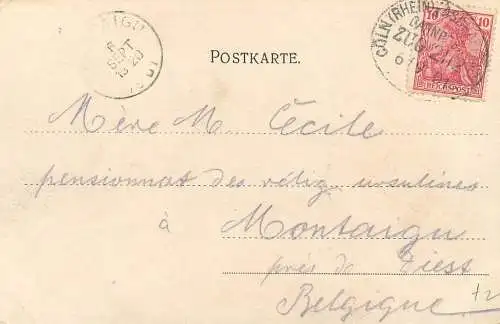 AIGU
6
SEPT
18-20
1901
CÖLN (RHEIN)
BAHNP.
ZUG
10 10
REICHSPOST
POSTKARTE.
Mère M. Cécile
pensionnat des relig. ursulines
à Montaigu
près de Diest
Belgique